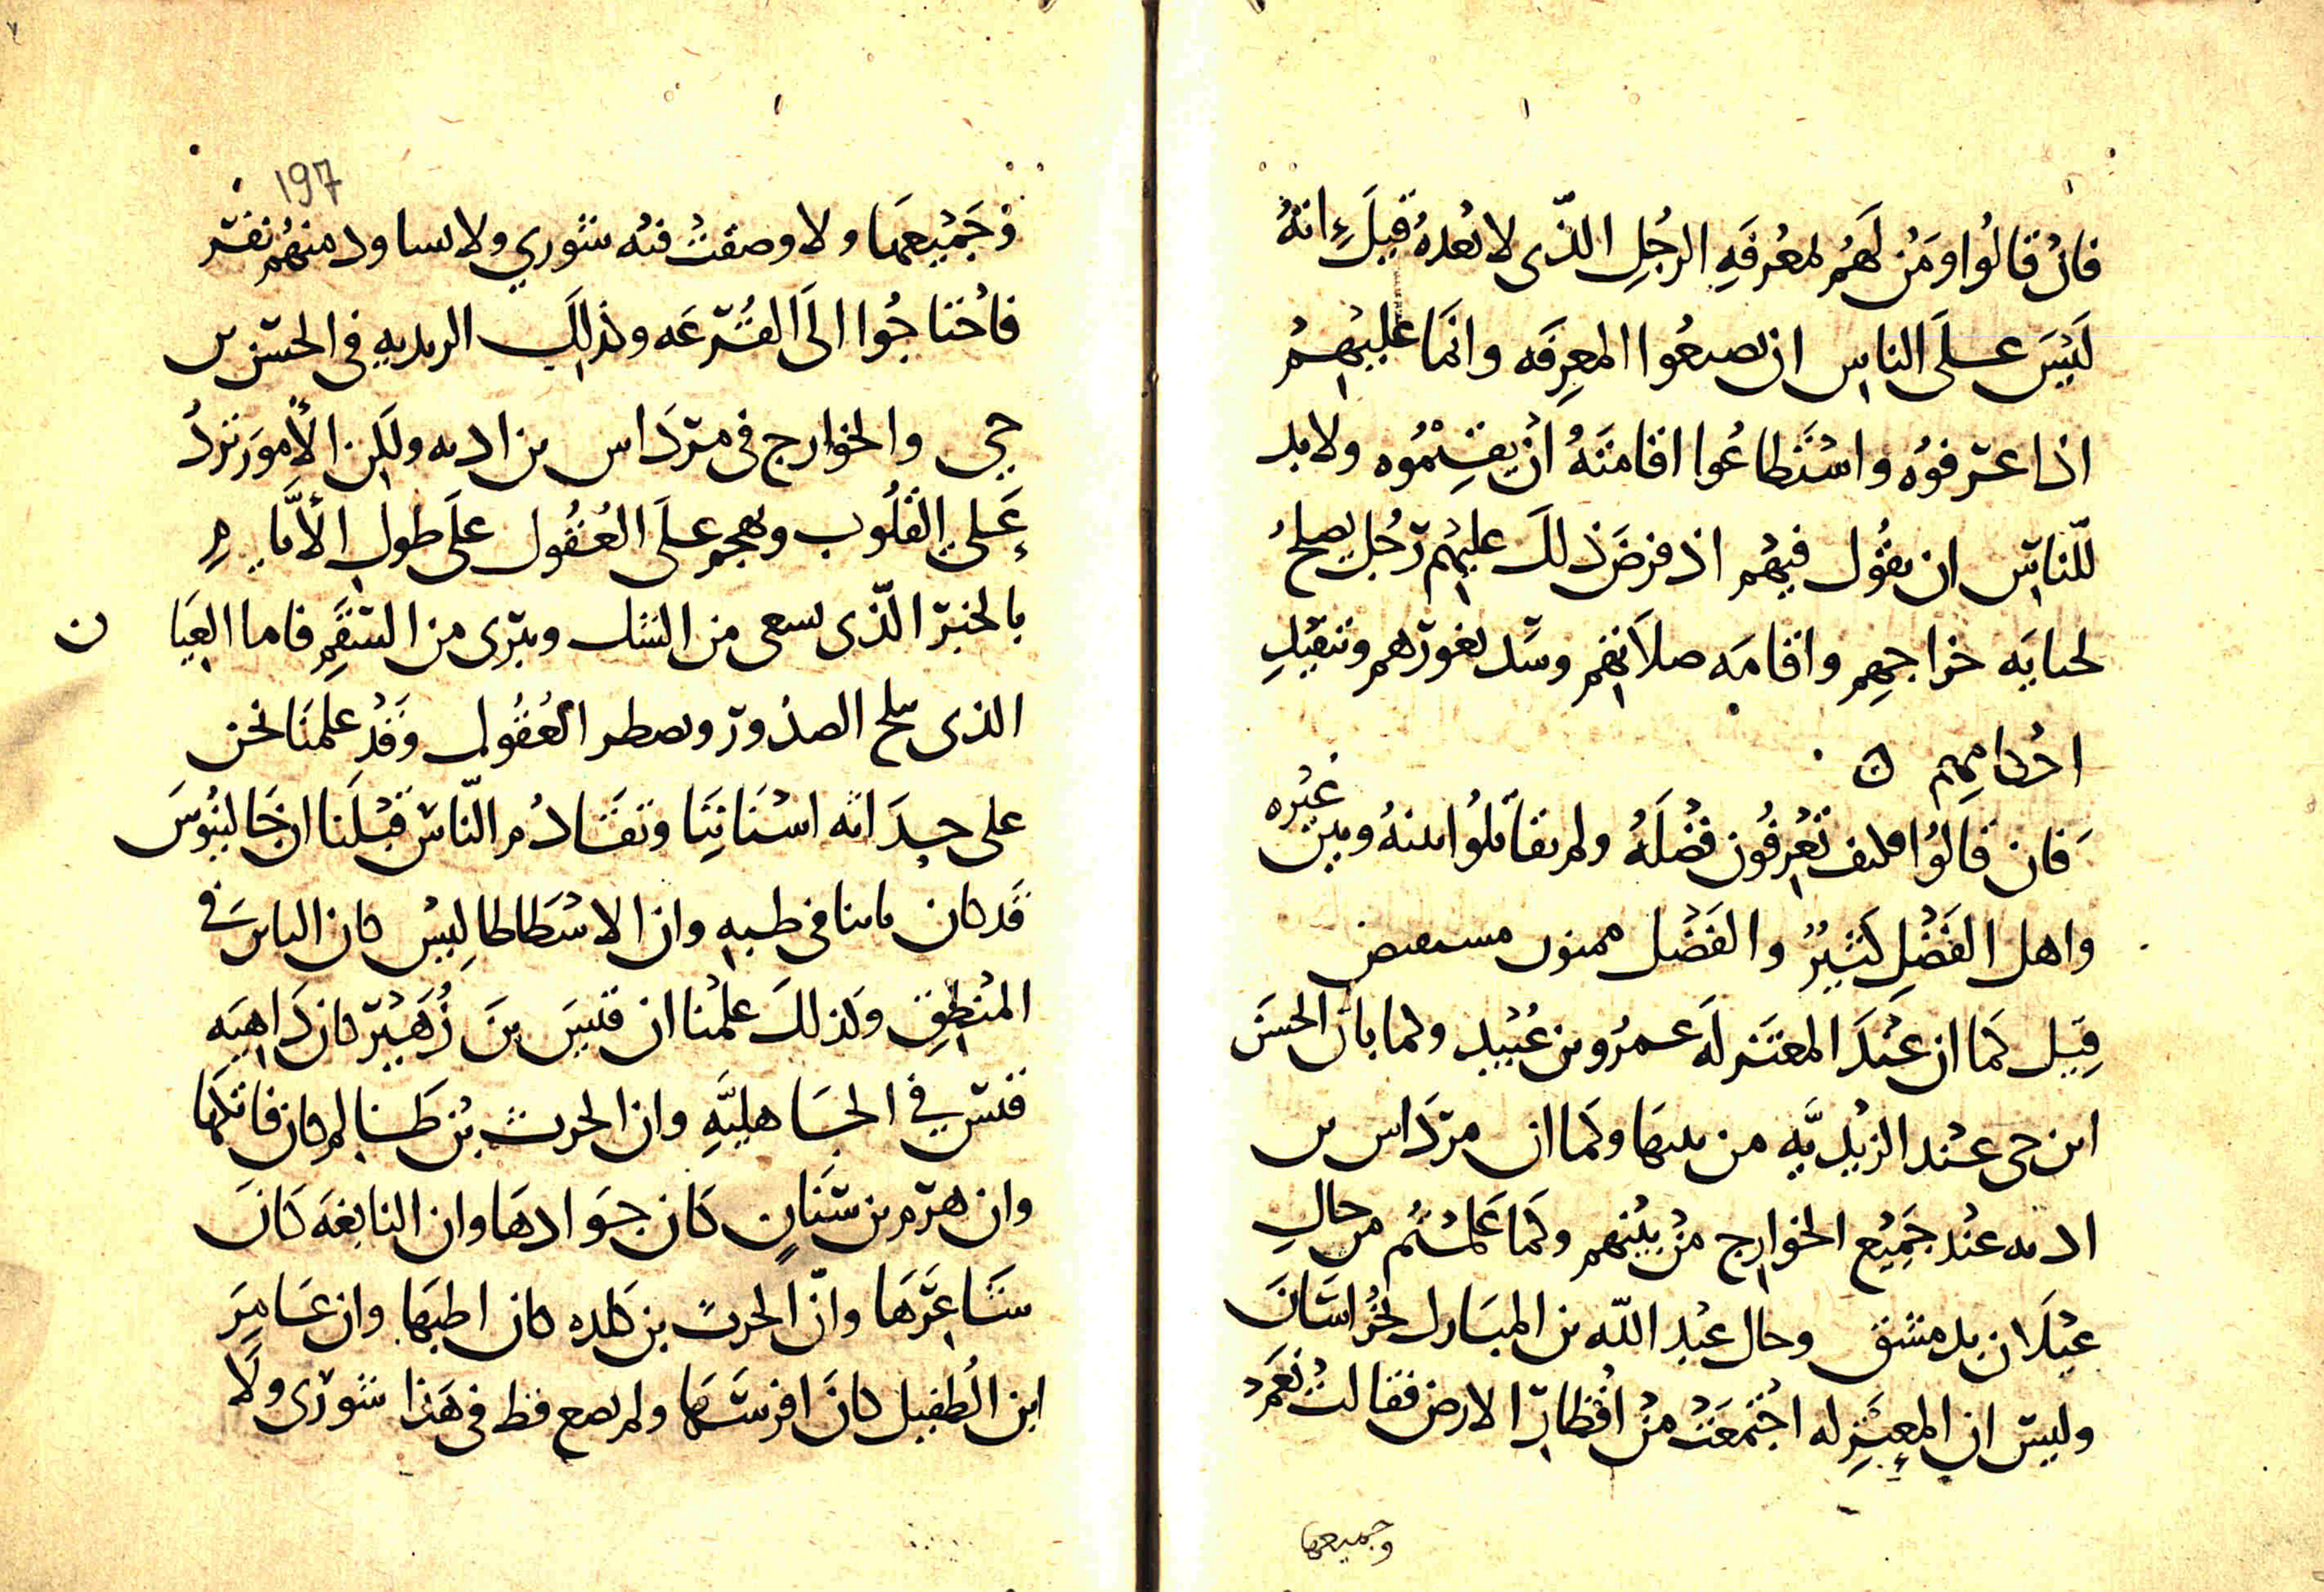 فان قالوا ومن لهم لمعرفه الرجل الذي لا بعده قيل انه
ليس على الناس ان يصنعوا المعرفه وانما عليهم
اذا عرفوه واستطاعوا اقامته ان يقيموه ولا بد
للناس ان يقول فيهم اذ فرض ذلك عليهم رجل يصلح
لجبايه خراجهم واقامه صلاتهم وسد ثغورهم وتنفيذ
احكامهم ن
فان قالوا فكيف تعرفون فضله ولم تقابلوا بينه وبين غيره
واهل الفضل كثير والفضل مستفيض
قيل كما ان عند المعتزله عمرو بن عبيد وكما بان الحسن
ابن حي عند الزيديه من بينها وكما ان مرداس بن
اديه عند جميع الخوارج من بينهم وكما علمتم من حال
غيلان بدمشق وحال عبد الله بن المبارك بخراسان
وليس ان المعتزله اجتمعت من اقطار الارض فقالت نعم
وجميعها
197
وجميعها ولا وصفت فيه شوري ولا تساود منهم نفر
فاحتاجوا الى القرعه وكذلك الزيديه في الحسن بن
حي والخوارج في مرداس بن اديه ولكن الأمور ترد
على القلوب وتهجم على العقول على طول الأيام
بالخبر الذي يشفي من الشك ويبري من السقم فاما العيان
الذي يثلج الصدور ويضطر العقول وقد علمنا نحن
على حداثه اسناننا وتقادم الناس قبلنا ان جالينوس
قد كان بائنا في طبه وان الاسطاطاليس كان البائن في
المنطق وكذلك علمنا ان قيس بن زهير كان داهيه
قيس في الجاهليه وان الحرث بن ظالم كان فاتكها
وان هرم بن سنان كان جوادها وان النابغه كان
شاعرها وان الحرث بن كلده كان اطبها وان عامر
ابن الطفيل كان افرسها ولم يصع قط في هذا شورى ولا